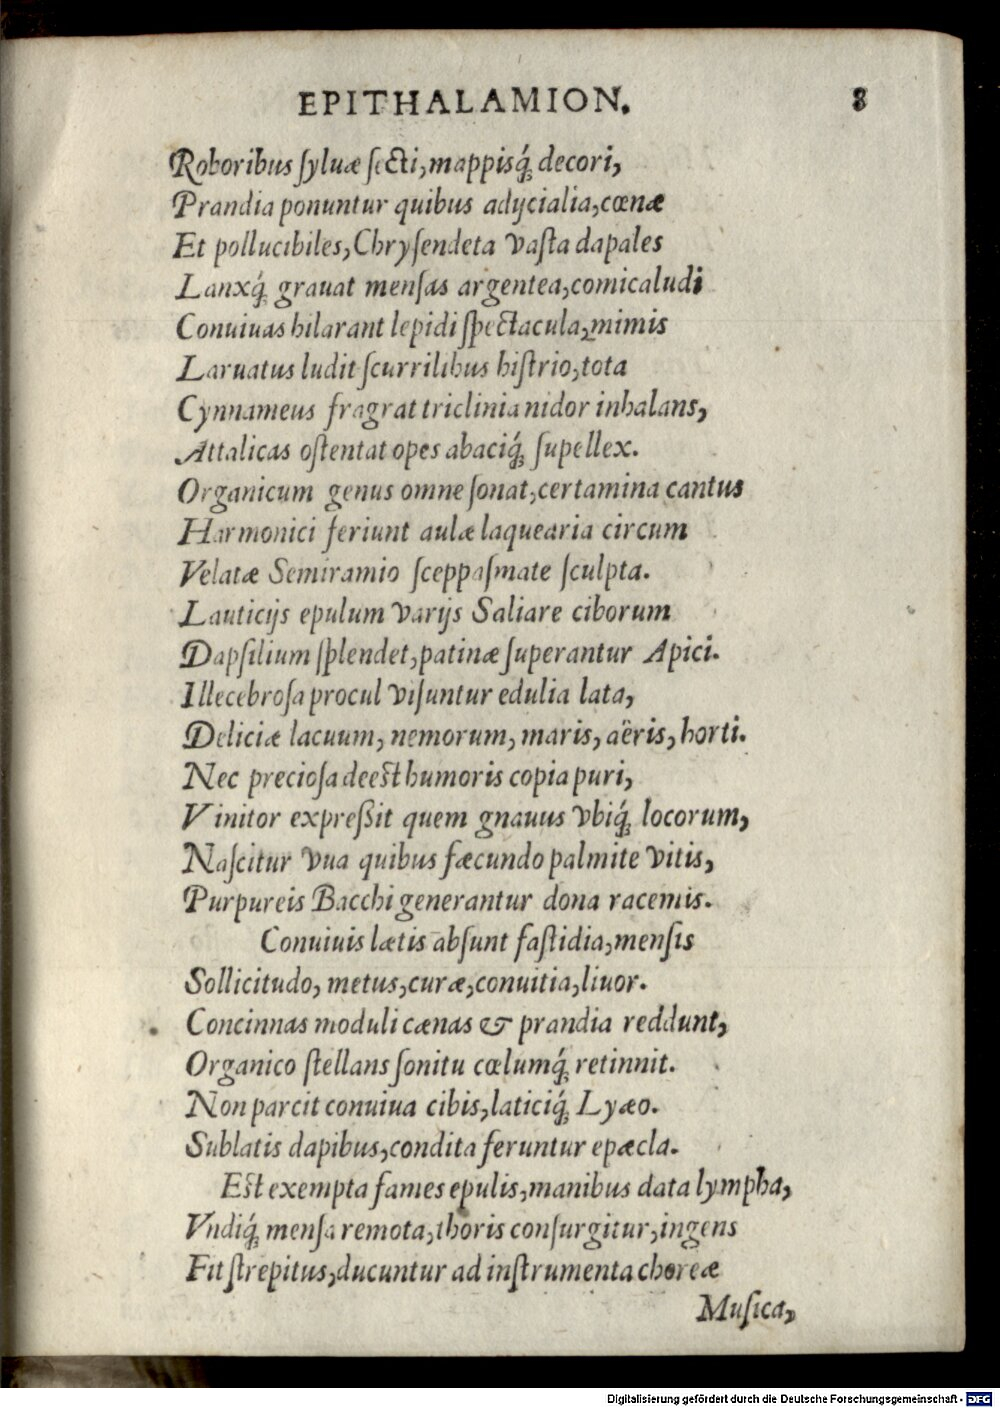 EPITHALAMION. 8
Roboribus ſyluæ ſecti, mappisq́; decori,
Prandia ponuntur quibus adijcialia, cœnæ
Et pollucibiles, Chryſendeta vaſta dapales
Lanxq́; grauat menſas argentea, comica ludi
Conuiuas hilarant lepidi ſpectacula, mimis
Laruatus ludit ſcurrilibus hiſtrio, tota
Cynnameus fragrat triclinia nidor inhalans,
Attalicas oſtentat opes abaciq́; ſupellex.
Organicum genus omne ſonat, certamina cantus
Harmonici feriunt aulæ laquearia circum
Velatæ Semiramio ſceppaſmate ſculpta.
Lauticijs epulum varijs Saliare ciborum
Dapſilium ſplendet, patinæ ſuperantur Apici.
Illecebroſa procul viſuntur edulia lata,
Deliciæ lacuum, nemorum, maris, aëris, horti.
Nec precioſa deest humoris copia puri,
Vinitor expreßit quem gnauus vbiq́; locorum,
Naſcitur vua quibus fæcundo palmite vitis,
Purpureis Bacchi generantur dona racemis.
Conuiuis lætis abſunt faſtidia, menſis
Sollicitudo, metus, curæ, conuitia, liuor.
Concinnas moduli cænas & prandia reddunt,
Organico ſtellans ſonitu cœlumq́; retinnit.
Non parcit conuiua cibis, laticiq́; Lyæo.
Sublatis dapibus, condita feruntur epæcla.
Est exempta fames epulis, manibus data lympha,
Vndiq́; menſa remota, thoris conſurgitur, ingens
Fit ſtrepitus, ducuntur ad inſtrumenta choreæ
Muſica,
Digitalisierung gefördert durch die Deutsche Forschungsgemeinschaft - DFG